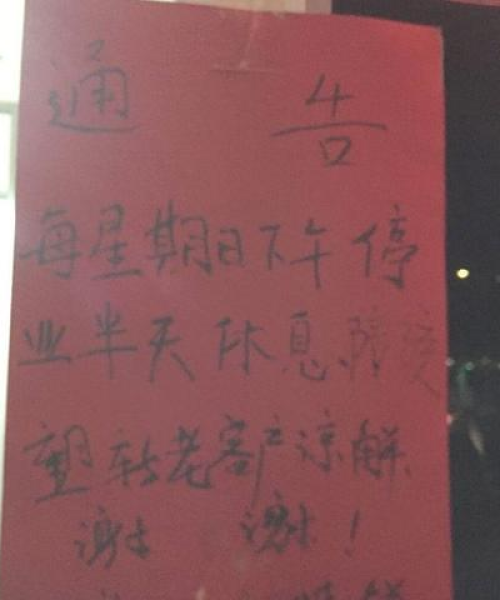 通 告
每星期日下午停
业半天休息
望新老客户谅解
谢 谢！